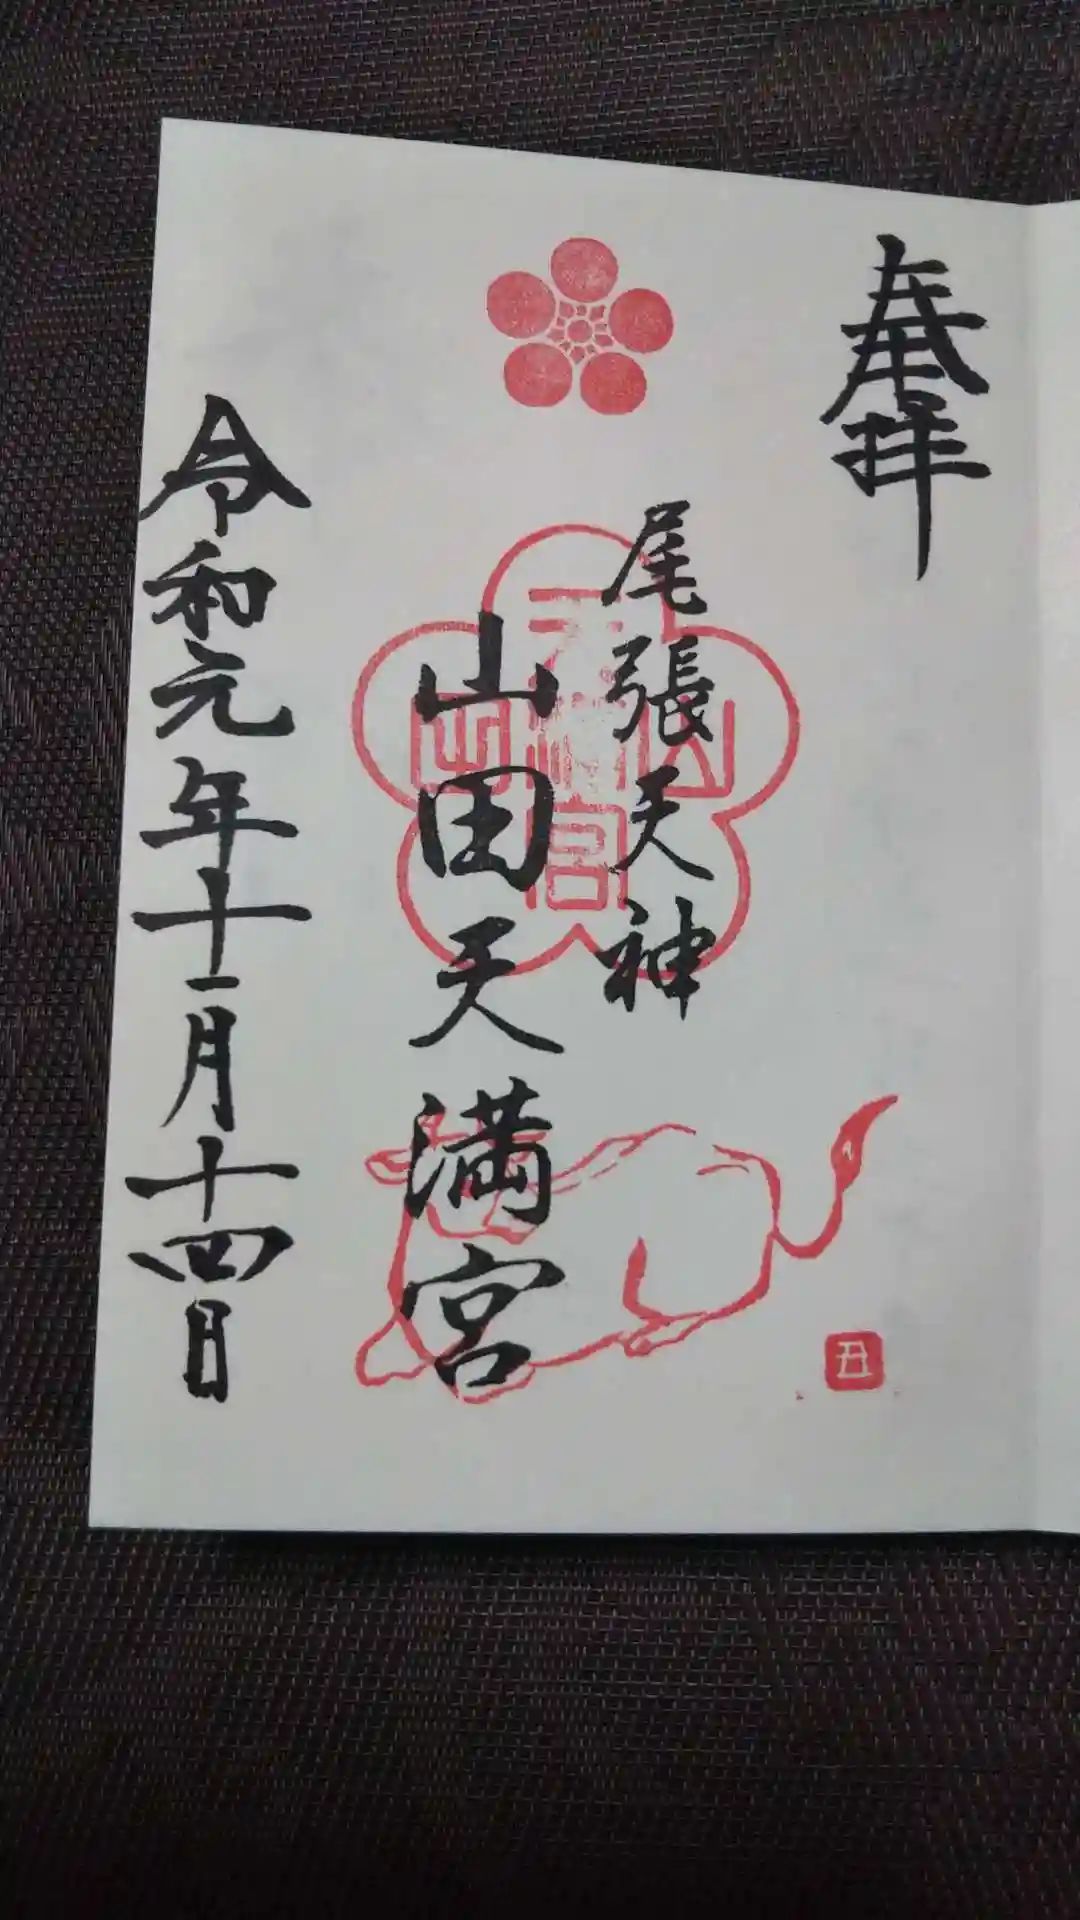 奉拝
尾張天神
山田天満宮
令和元年十一月十四日
山田
天満宮
丑